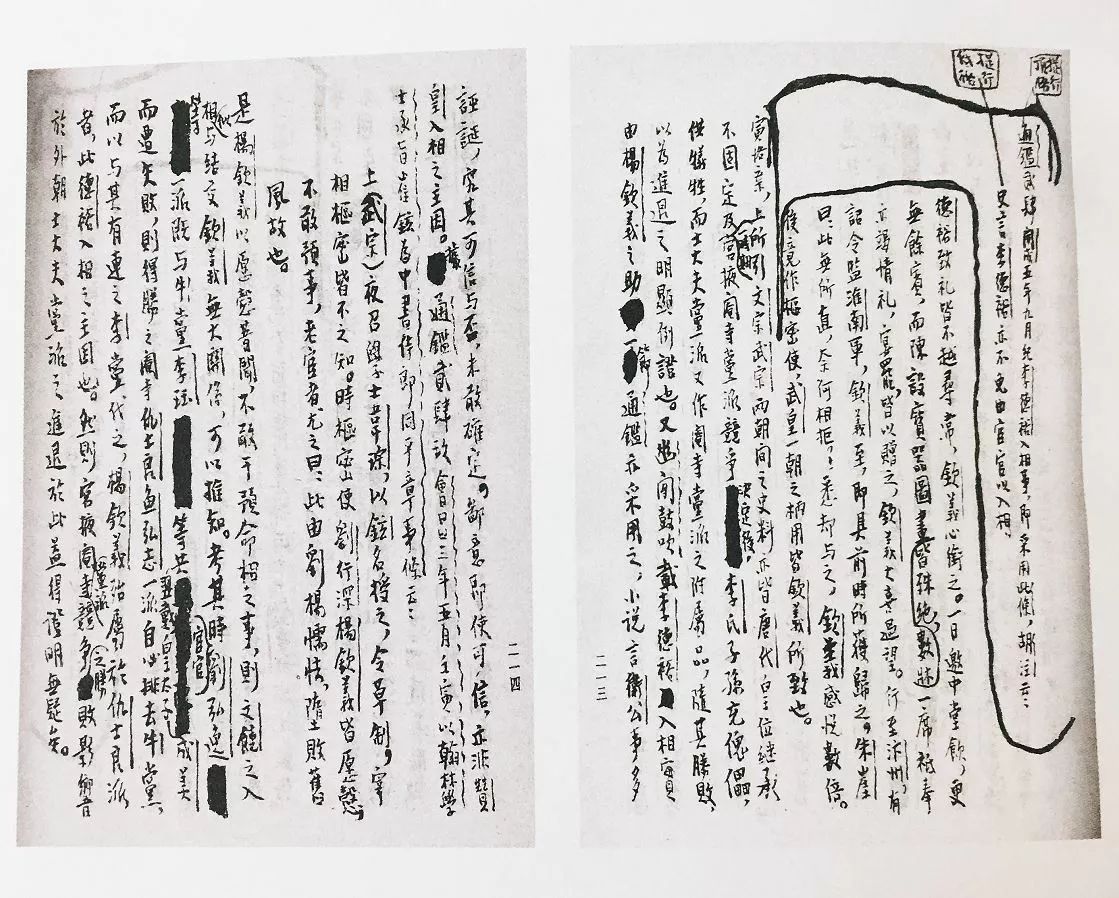 提行頂格
提行低格
通鑑貳肆開成五年九月紀李德裕入相事即采用此條,胡注云:
史言李德裕亦不免由宦官以入相。
德裕致礼皆不越尋常,欽義心銜之。一日邀中堂飲,更
無餘賓,而陳設寶器圖畫皆殊絕,數牀一席祗奉
亦竭情礼,宴罷皆以贈之,欽義大喜過望。行至汴州,有
詔令監淮南軍,欽義至,即具前時所獲歸之。朱崖
曰:此無所直,奈何相拒,悉却与之,欽義感悅數倍。
後竟作樞密使,武皇一朝之柄用皆欽義所致也。
寅恪案,上所引文宗武宗兩朝間之史料亦皆唐代皇位継承
不固定及宮掖閹寺黨派競爭決定後,李氏子孫充傀儡,
供犧牲,而士大夫黨派又作閹寺黨派之附屬品,隨其勝敗,
以為進退之明顯例證也。又幽閒鼓吹載李德裕入相實
由楊欽義之助,通鑑亦采用之,小說言衛公事多
二一三
誣謬,究其可信与否,未敢確定。鄙意即使可信,亦非贊
皇入相之主因。據通鑑貳肆會昌三年五月壬寅以翰林學
士承旨崔鉉為中書侍郎同平章事條云:
上(武宗)夜召學士韋琮,以鉉名授之,令草制,宰
相樞密皆不之知。時樞密使劉行深楊欽義皆愿愨,
不敢預事,老宦者尤之曰:此由劉楊懦怯,墮敗舊
風故也。
是楊欽義以愿愨著聞,不敢干預命相之事,則文饒之入
相似与結交欽義無大關係,可以推知。考其時宦官劉弘逸
等一派既与牛黨李珏等共擁戴皇太子成美
而遭失敗,則得勝之閹寺仇士良魚弘志一派自必排去牛黨,
而以与其有連之李黨代之,楊欽義殆屬於仇士良派
者,此德裕入相之主因也。然則宮掖閹寺黨派競爭之勝敗影響
於外朝士大夫黨派之進退於此益得證明無疑矣。
二一四